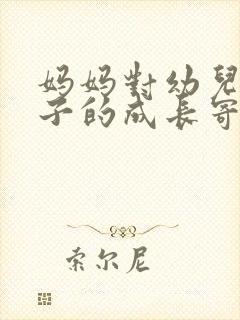 妈妈對幼兒
子的成長寄
索尔尼